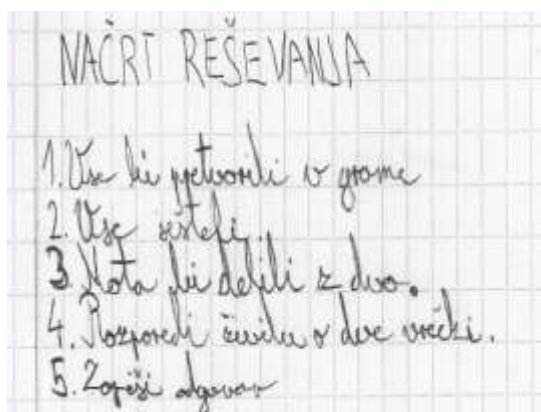 NAČRT REŠEVANJA
1. Vse bi pretvorili v grame
2. Vse sešteli.
3 Nota bi delili z dvo.
4. Razporedi živila v dve vrečki.
5. Zapiši odgovor